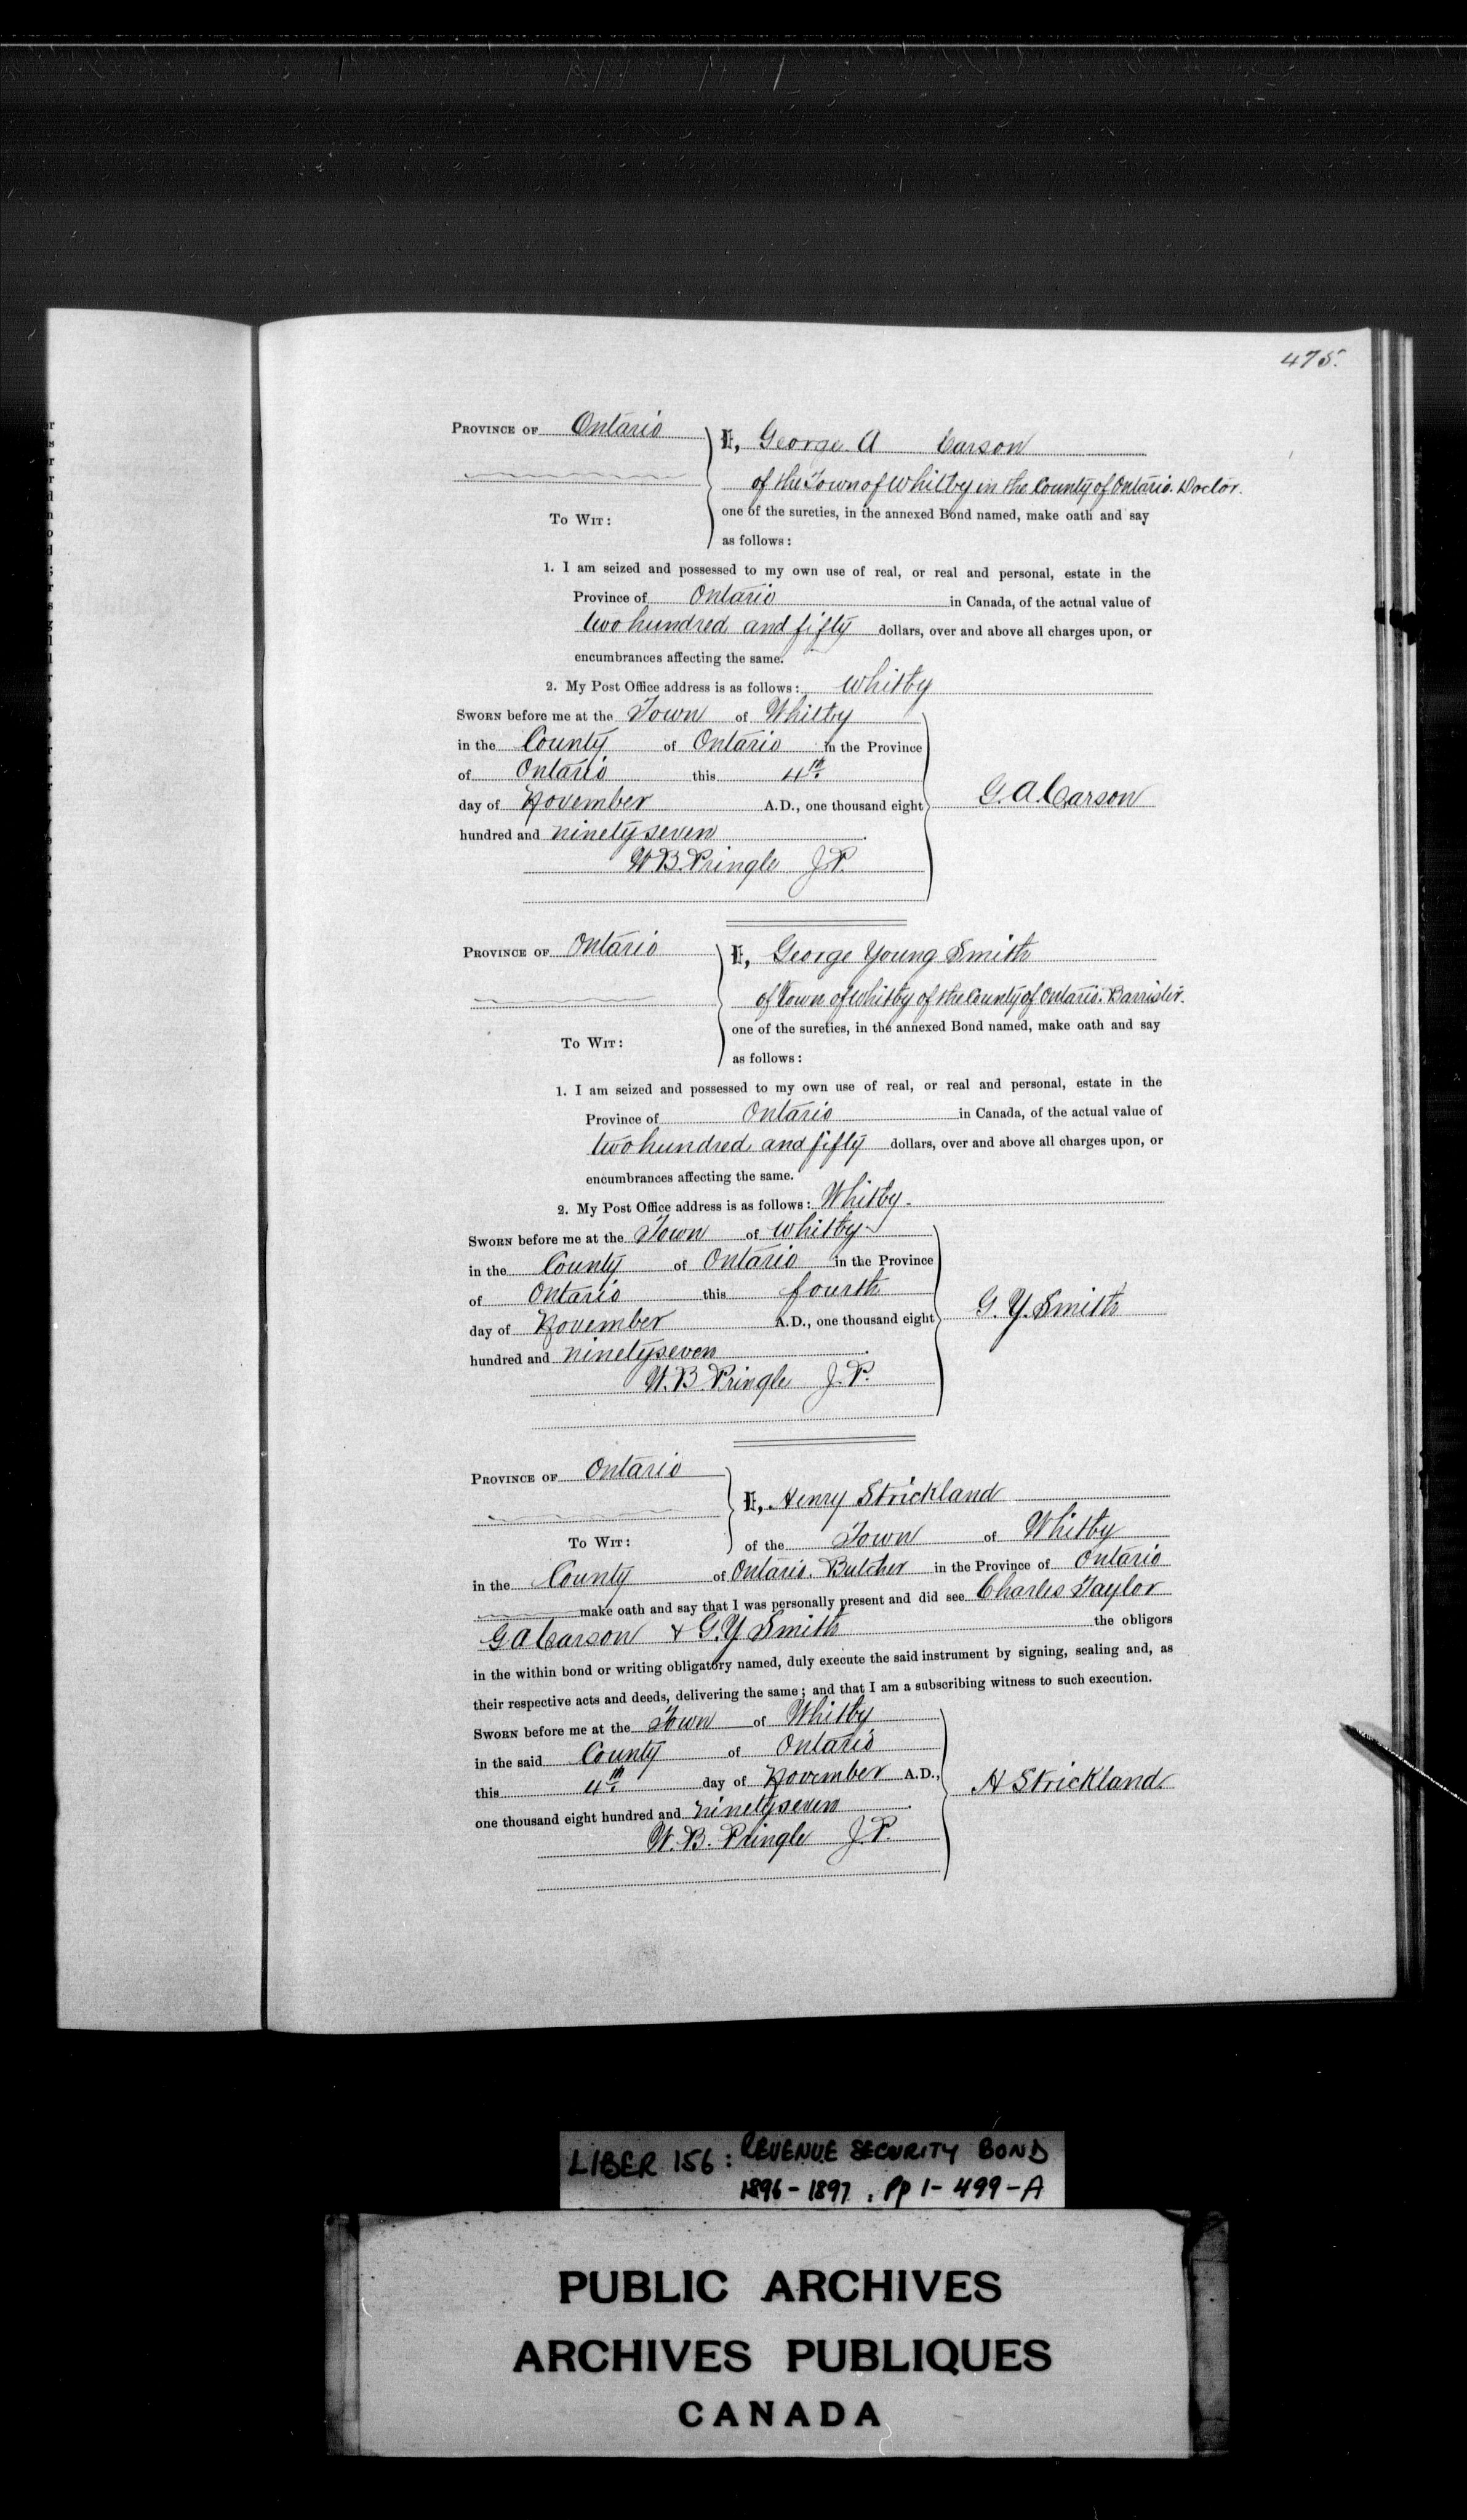 475.
PROVINCE OF Ontario
I, George A Carson
of the Town of Whitby in the County of Ontario. Doctor.
TO WIT:
one of the sureties, in the annexed Bond named, make oath and say
as follows:
1. I am seized and possessed to my own use of real, or real and personal, estate in the
Province of Ontario in Canada, of the actual value of
two hundred and fifty dollars, over and above all charges upon, or
encumbrances affecting the same.
2. My Post Office address is as follows: Whitby
SWORN before me at the Town of Whitby
in the County of Ontario in the Province
of Ontario this 4th
day of November A.D., one thousand eight
G. A. Carson
hundred and ninety seven
W. B. Pringle J.P.
PROVINCE OF Ontario
I, George Young Smith
of Town of Whitby of the County of Ontario. Barrister.
TO WIT:
one of the sureties, in the annexed Bond named, make oath and say
as follows:
1. I am seized and possessed to my own use of real, or real and personal, estate in the
Province of Ontario in Canada, of the actual value of
two hundred and fifty dollars, over and above all charges upon, or
encumbrances affecting the same.
2. My Post Office address is as follows: Whitby.
SWORN before me at the Town of Whitby
in the County of Ontario in the Province
of Ontario this fourth
day of November A.D., one thousand eight
G. Y. Smith
hundred and ninety seven
W. B. Pringle J. P.
PROVINCE OF Ontario
I, Henry Strickland
TO WIT:
of the Town of Whitby
in the County of Ontario. Butcher in the Province of Ontario
make oath and say that I was personally present and did see Charles Taylor
G A Carson & G. Y Smith the obligors
in the within bond or writing obligatory named, duly execute the said instrument by signing, sealing and, as
their respective acts and deeds, delivering the same; and that I am a subscribing witness to such execution.
SWORN before me at the Town of Whitby
in the said County of Ontario
this 4th day of November A.D.,
H Strickland
one thousand eight hundred and ninety seven
W. B. Pringle J. P.
LIBER 156: REVENUE SECURITY BOND
1896-1897, Pp 1-499-A
PUBLIC ARCHIVES
ARCHIVES PUBLIQUES
CANADA